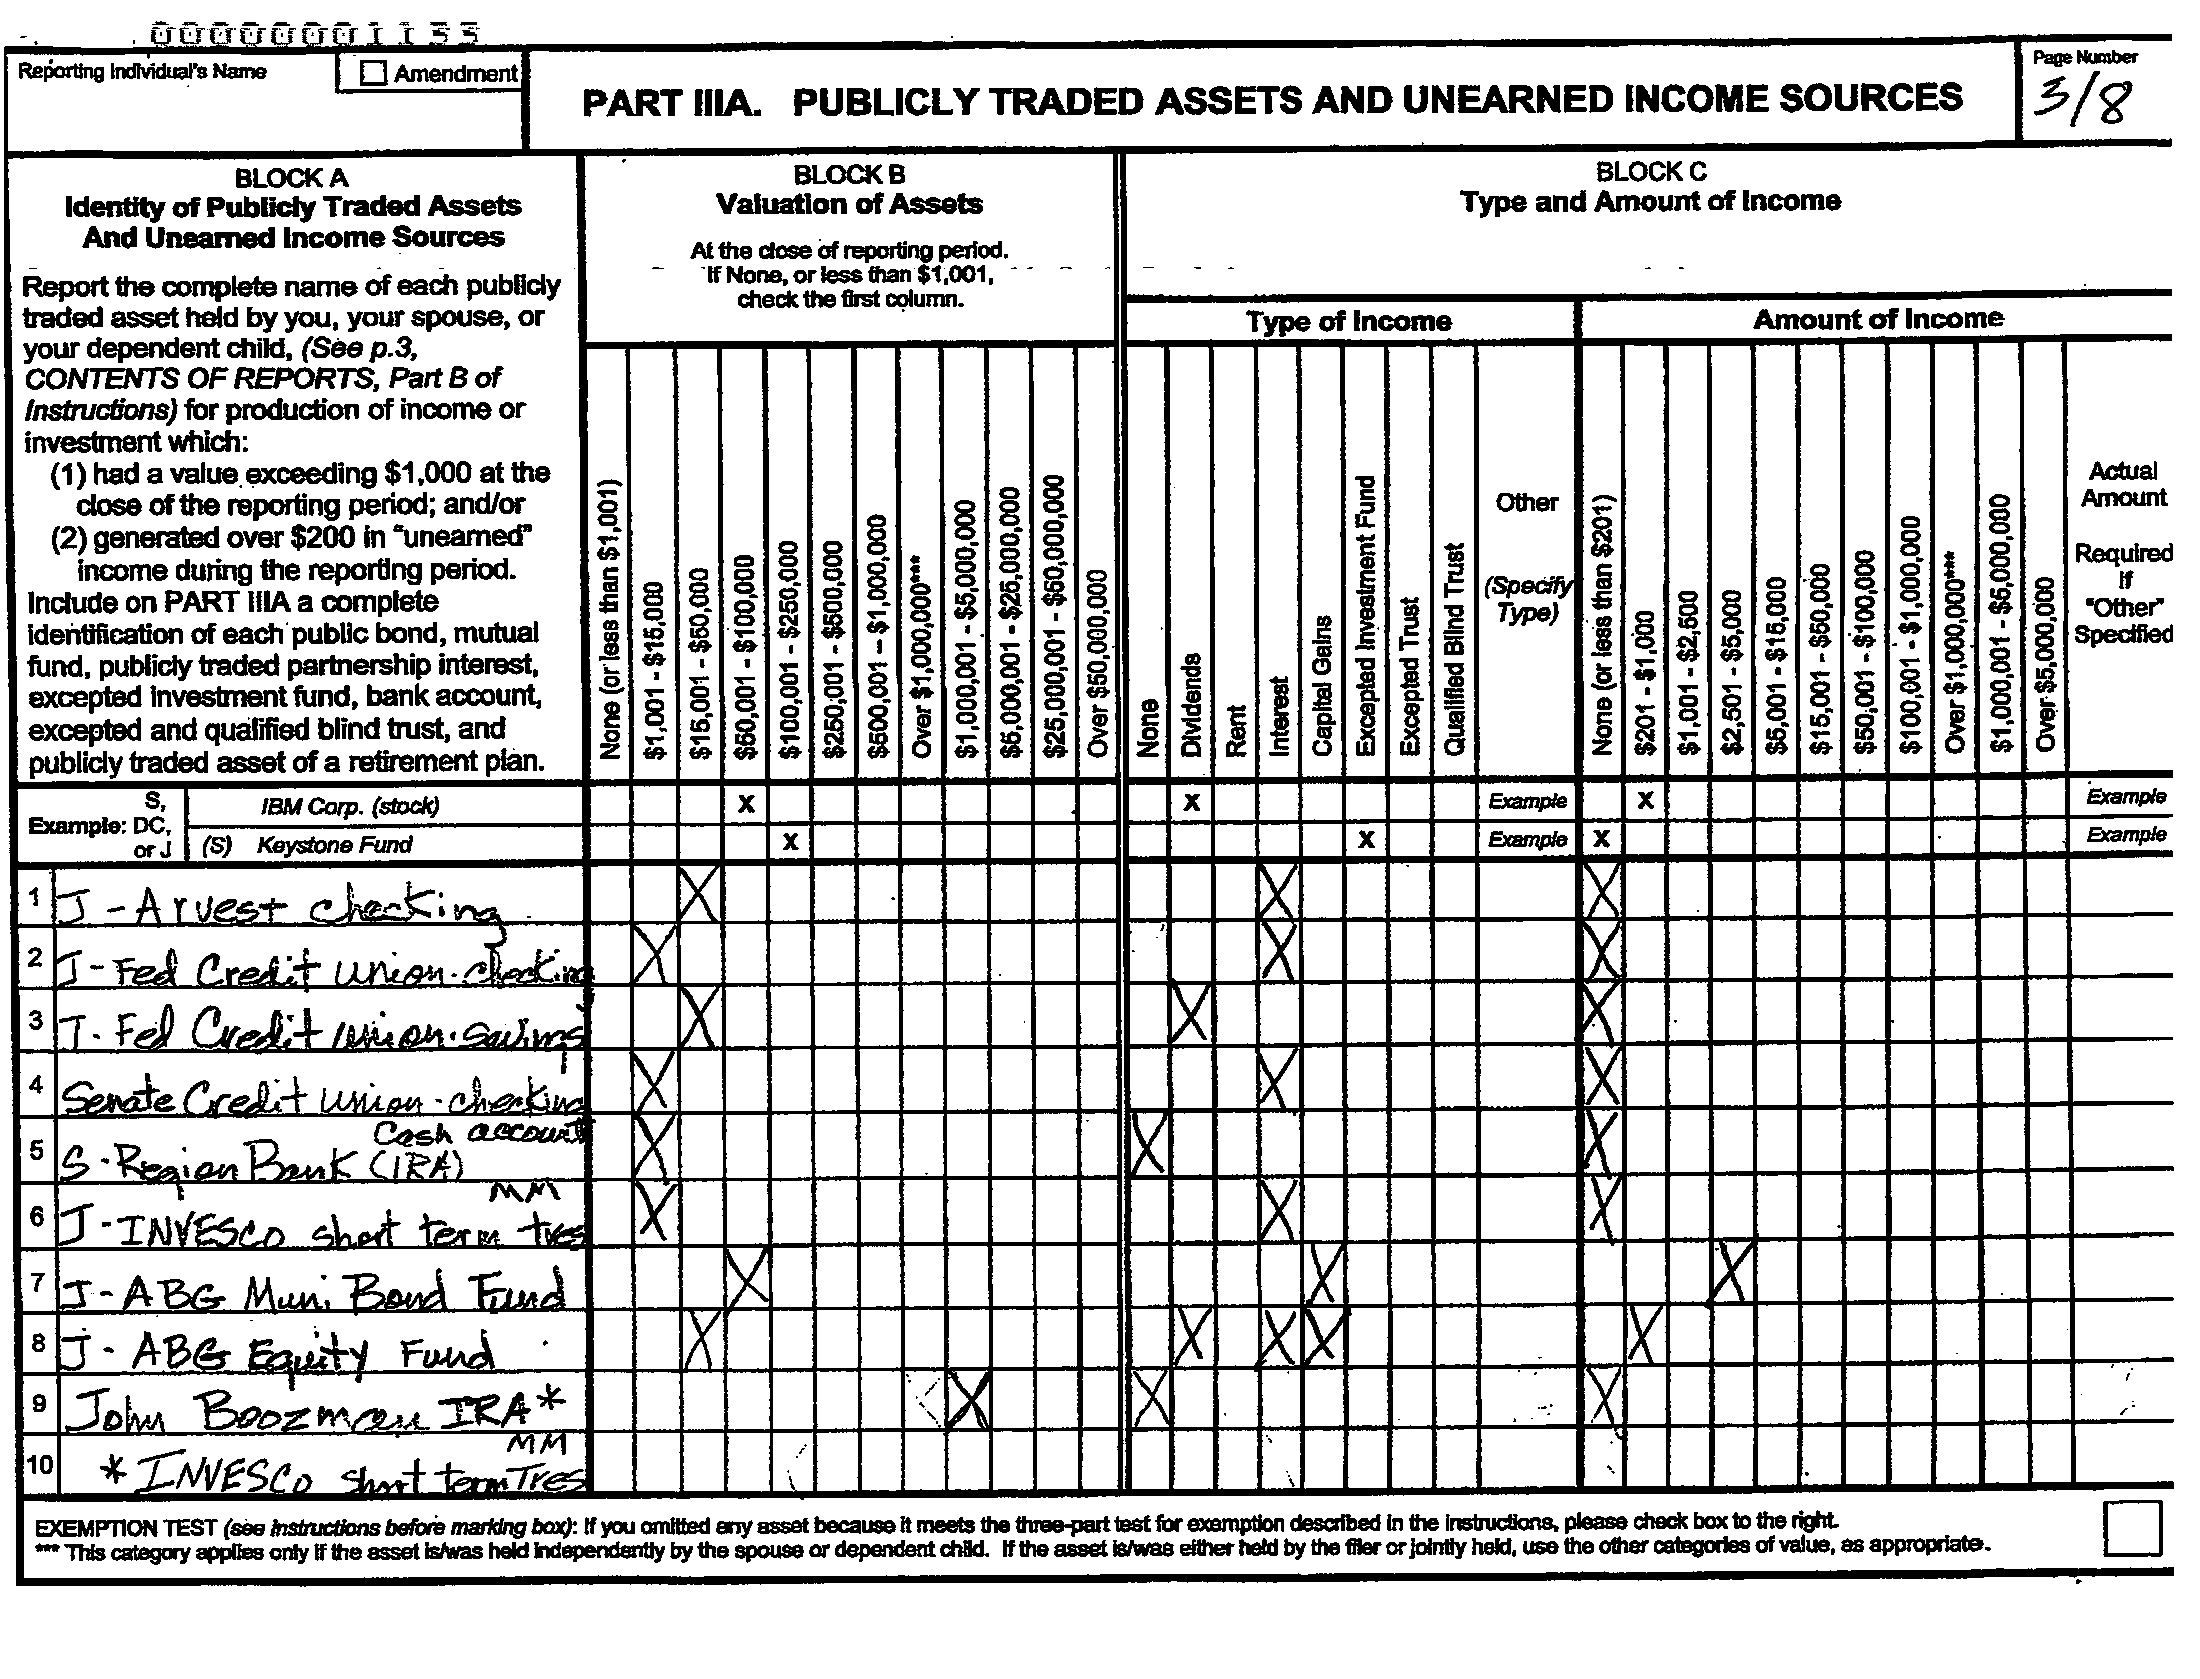 00000001155
Reporting Individual's Name
☐ Amendment
PART IIIA. PUBLICLY TRADED ASSETS AND UNEARNED INCOME SOURCES
Page Number
3/8
BLOCK A
Identity of Publicly Traded Assets
And Unearned Income Sources
Report the complete name of each publicly
traded asset held by you, your spouse, or
your dependent child, (See p.3,
CONTENTS OF REPORTS, Part B of
Instructions) for production of income or
investment which:
(1) had a value exceeding $1,000 at the
close of the reporting period; and/or
(2) generated over $200 in "unearned"
income during the reporting period.
Include on PART IIIA a complete
identification of each public bond, mutual
fund, publicly traded partnership interest,
excepted investment fund, bank account,
excepted and qualified blind trust, and
publicly traded asset of a retirement plan.
BLOCK B
Valuation of Assets
At the close of reporting period.
If None, or less than $1,001,
check the first column.
None (or less than $1,001)
$1,001 - $15,000
$15,001 - $50,000
$50,001 - $100,000
$100,001 - $250,000
$250,001 - $500,000
$500,001 - $1,000,000
Over $1,000,000***
$1,000,001 - $5,000,000
$5,000,001 - $25,000,000
$25,000,001 - $50,000,000
Over $50,000,000
BLOCK C
Type and Amount of Income
Type of Income
None
Dividends
Rent
Interest
Capital Gains
Excepted Investment Fund
Excepted Trust
Qualified Blind Trust
Other
(Specify
Type)
Amount of Income
None (or less than $201)
$201 - $1,000
$1,001 - $2,500
$2,501 - $5,000
$5,001 - $15,000
$15,001 - $50,000
$50,001 - $100,000
$100,001 - $1,000,000
Over $1,000,000***
$1,000,001 - $5,000,000
Over $5,000,000
Actual
Amount
Required
If
"Other"
Specified
Example: S,
DC,
or J
IBM Corp. (stock) X X Example X Example
(S) Keystone Fund X X Example X Example
1 J - Arvest checking X X X
2 J - Fed Credit Union - checking X X X
3 J - Fed Credit Union - Savings X X X
4 Senate Credit Union - checking X X X
Cash account
5 S - Region Bank (IRA) X X X
MM
6 J - INVESCO short term tres X X X
7 J - ABG Muni Bond Fund X X X
8 J - ABG Equity Fund X X X X X
9 John Boozman IRA* X X X
MM
10 * INVESCO short term Tres
EXEMPTION TEST (see instructions before marking box): If you omitted any asset because it meets the three-part test for exemption described in the instructions, please check box to the right.
*** This category applies only if the asset is/was held independently by the spouse or dependent child. If the asset is/was either held by the filer or jointly held, use the other categories of value, as appropriate.